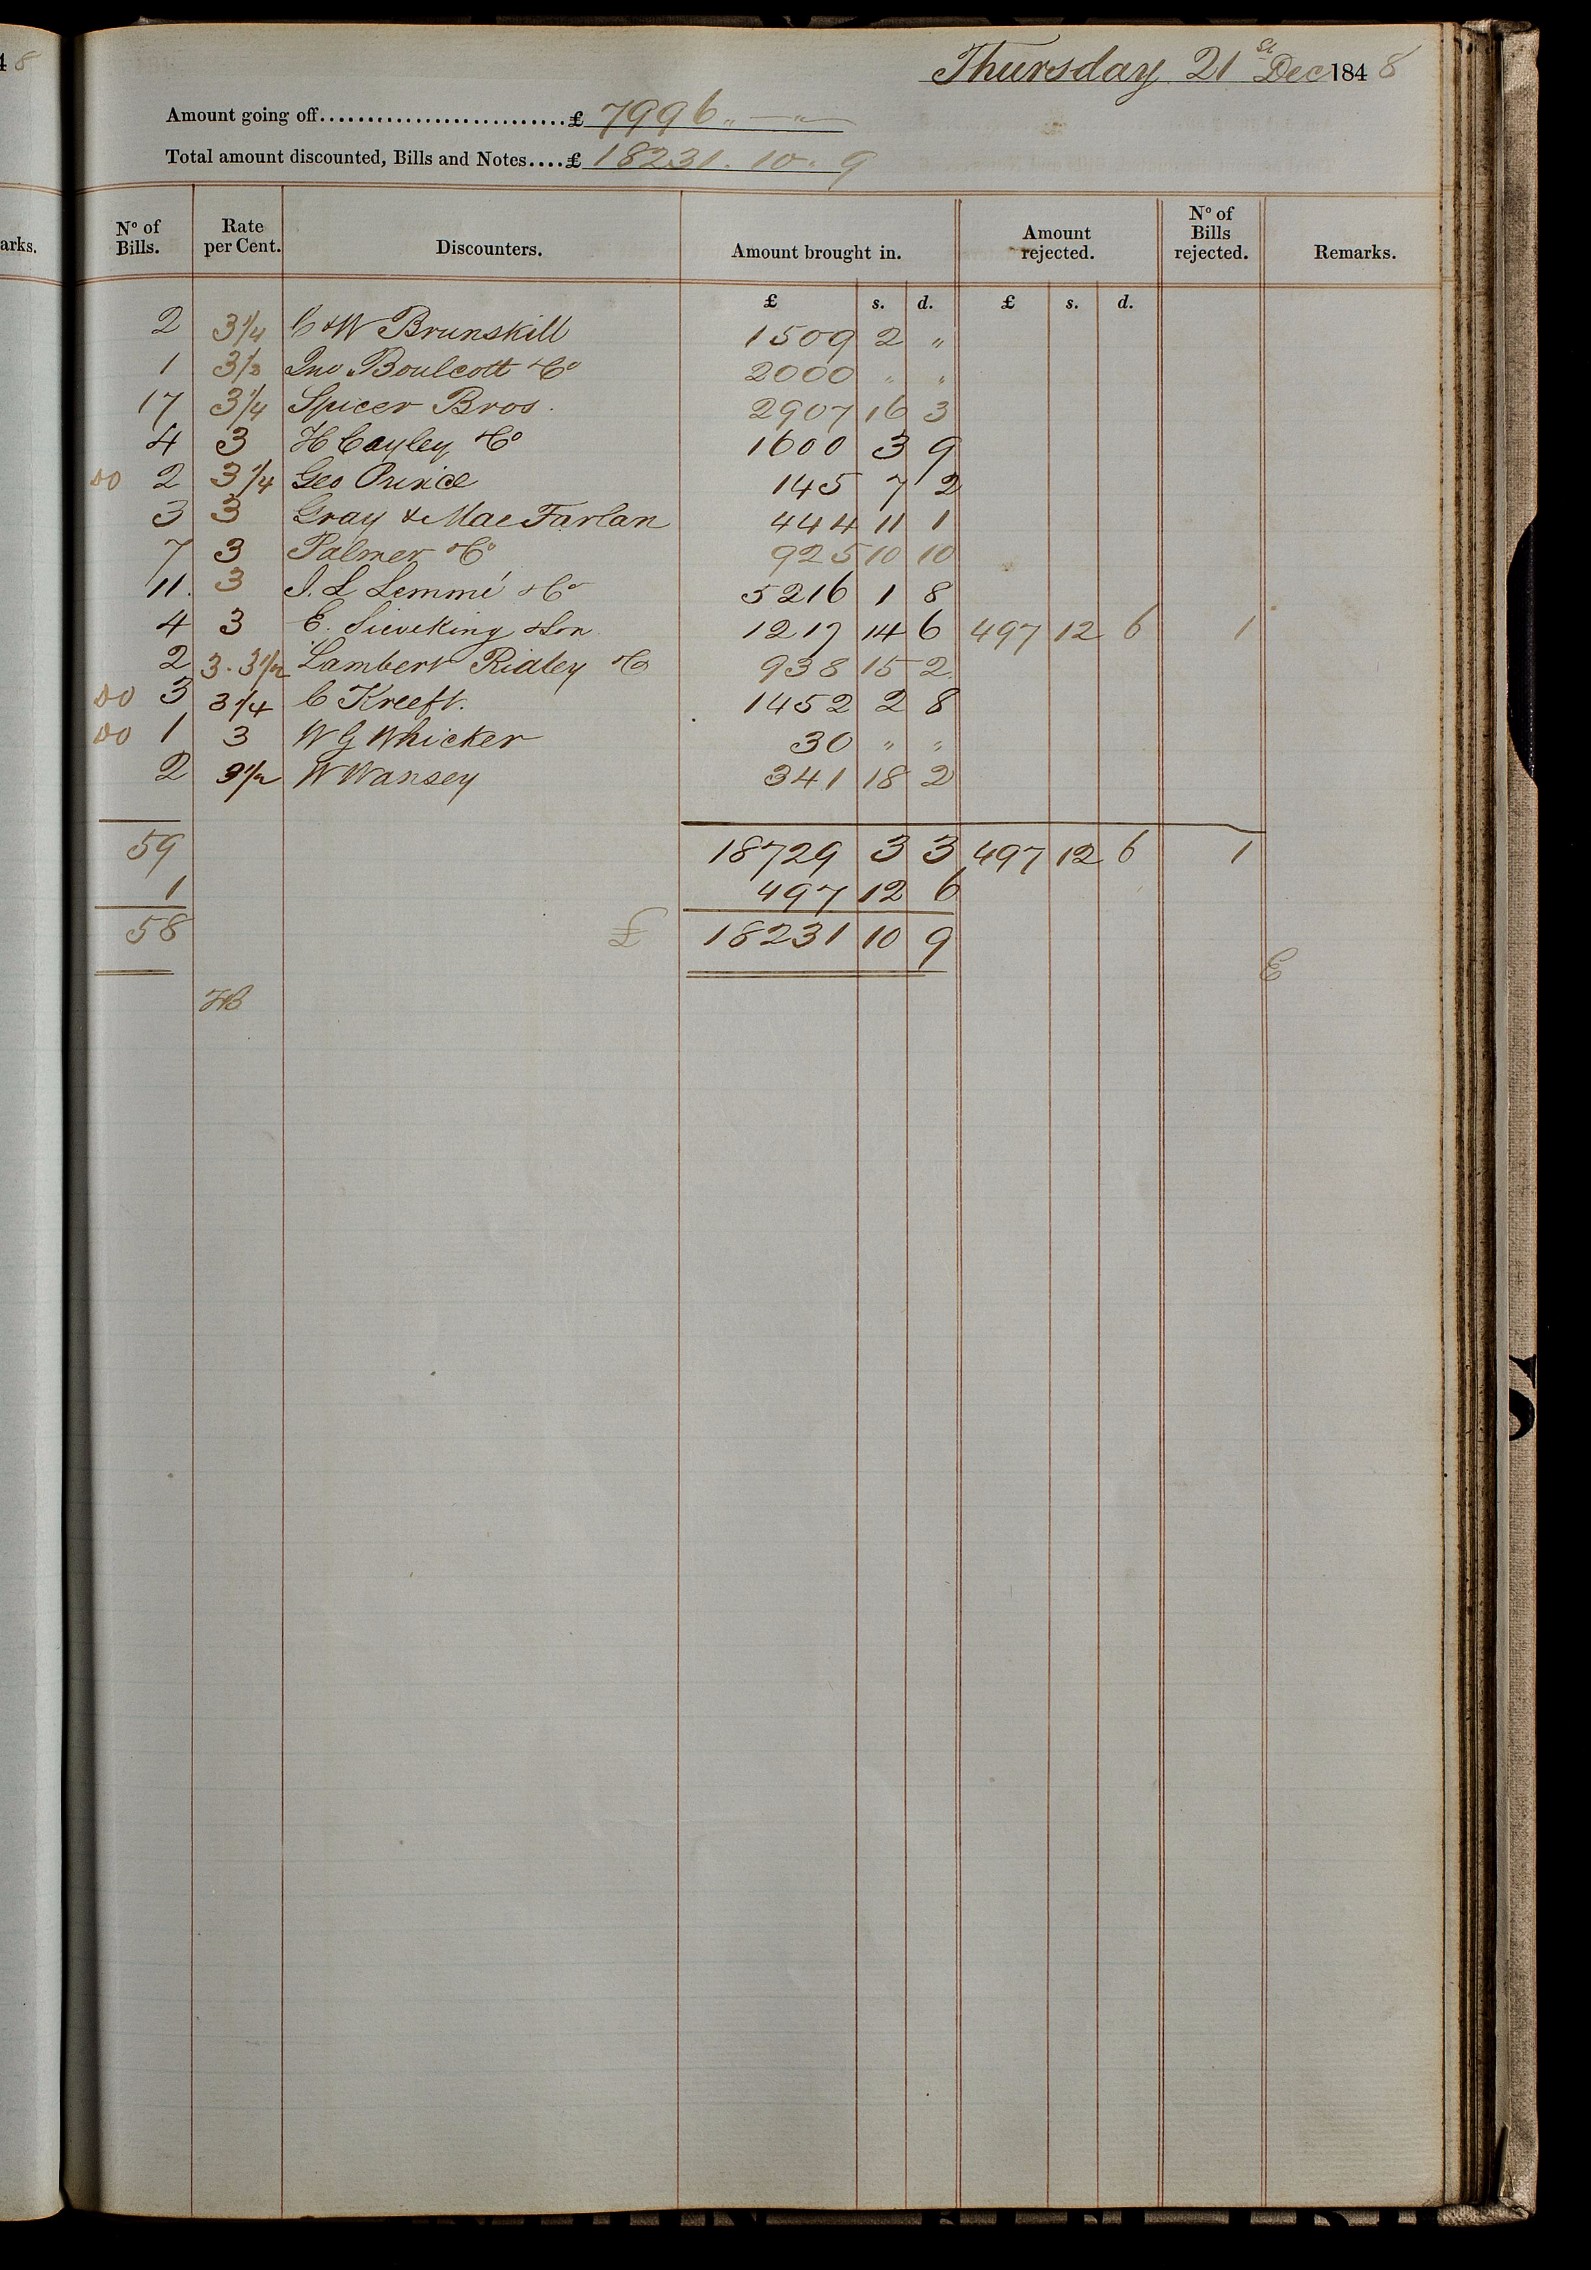 4 8
Thursday 21st Dec 1848
Amount going off..........................£ 7996 " — "
Total amount discounted, Bills and Notes....£ 18231 . 10 . 9
arks.
No of Bills. Rate per Cent. Discounters. Amount brought in. Amount rejected. No of Bills rejected. Remarks.
£ s. d. £ s. d.
2 3 1/4 C & W Brunskill 1509 2 "
1 Jno Boulcott & Co 2000 " "
17 3 1/4 Spicer Bros. 2907 16 3
4 3 H Cayley & Co 1600 3 9
Do 2 3 1/4 Geo Prince 145 7 2
3 3 Gray & MacFarlan 444 11 1
7 3 Palmer & Co 925 10 10
11. 3 J. L Lemmé & Co 5216 1 8
4 3 E. Sieveking & Son 1217 14 6 497 12 6 1
2 3 . 3 1/2 Lambert Ridley & Co 938 15 2
Do 3 3 1/4 C Kreeft. 1452 2 8
Do 1 3 W G Whicker 30 " "
2 3 1/2 W Wansey 341 18 2
59 18729 3 3 497 12 6 1
1 497 12 6
58 £ 18231 10 9
E
HB